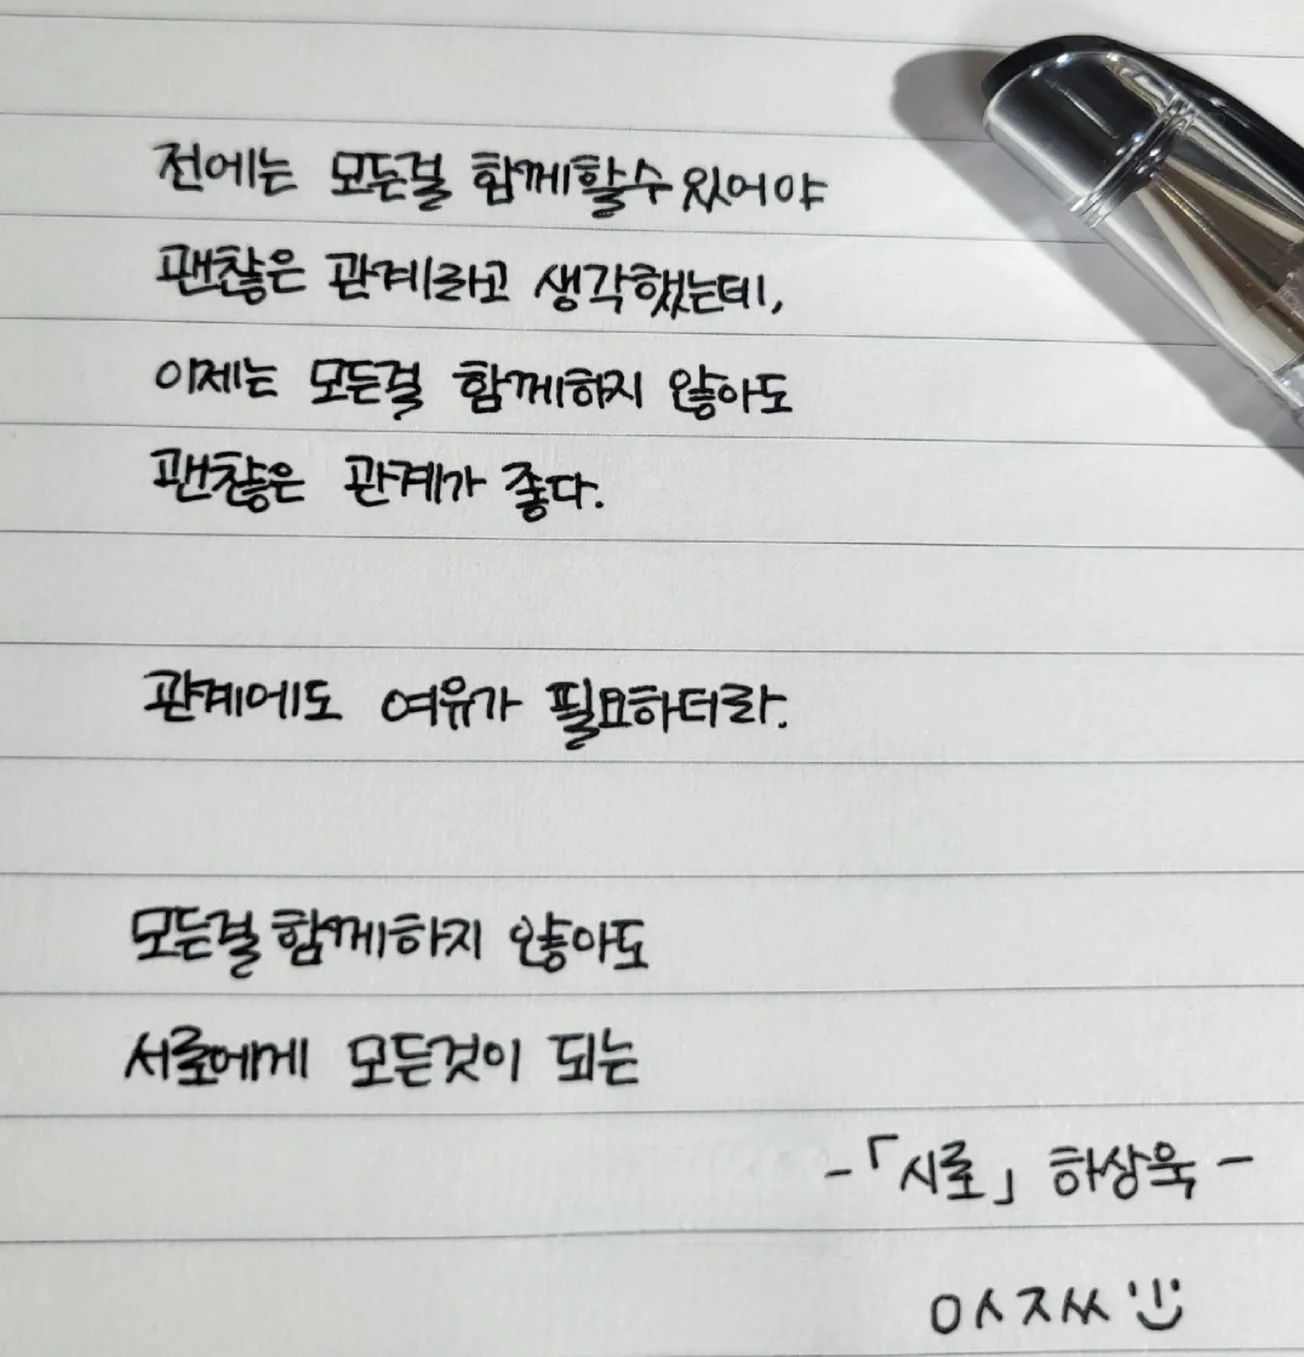 전에는 모든걸 함께할수 있어야
괜찮은 관계라고 생각했는데,
이제는 모든걸 함께하지 않아도
괜찮은 관계가 좋다.
관계에도 여유가 필요하더라.
모든걸 함께하지 않아도
서로에게 모든것이 되는
-「시로」 하상욱-
ㅇㅅㅈㅆ